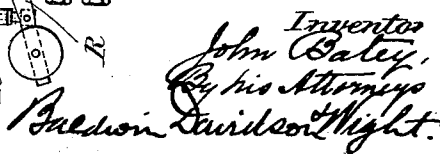 R
Inventor
John Batey,
By his Attorneys
Baldwin Davidson & Wight.